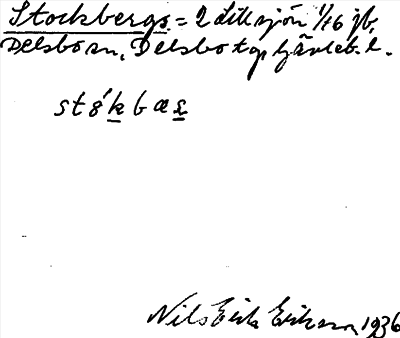 Stockbergs. = 2 Lillsjön 1/16 jb,
Delsbo sn, Delsbo tg Gävleb. l.
st8́kbas
Nils Erik Erikson 1936